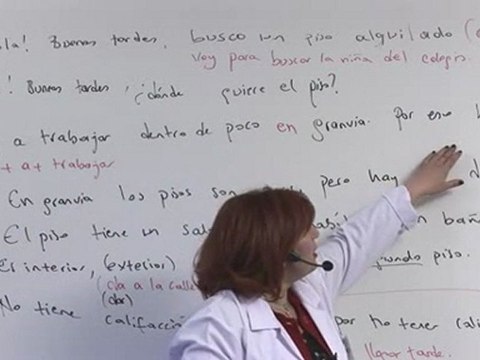 la! Buenas tardes. busco un piso alquilado (
Voy para buscar la niña del colegio.
! Buenas tardes, ¿dónde quiere el piso?
a trabajar dentro de poco en granvia. Por eso
+ a + trabajar
En granvia los pisos son pero hay
El piso tiene un sal bañ
Es interior, (exterior) grande piso.
(da a la calle)
No tiene calefacció por no tener cale
llegar tarde.